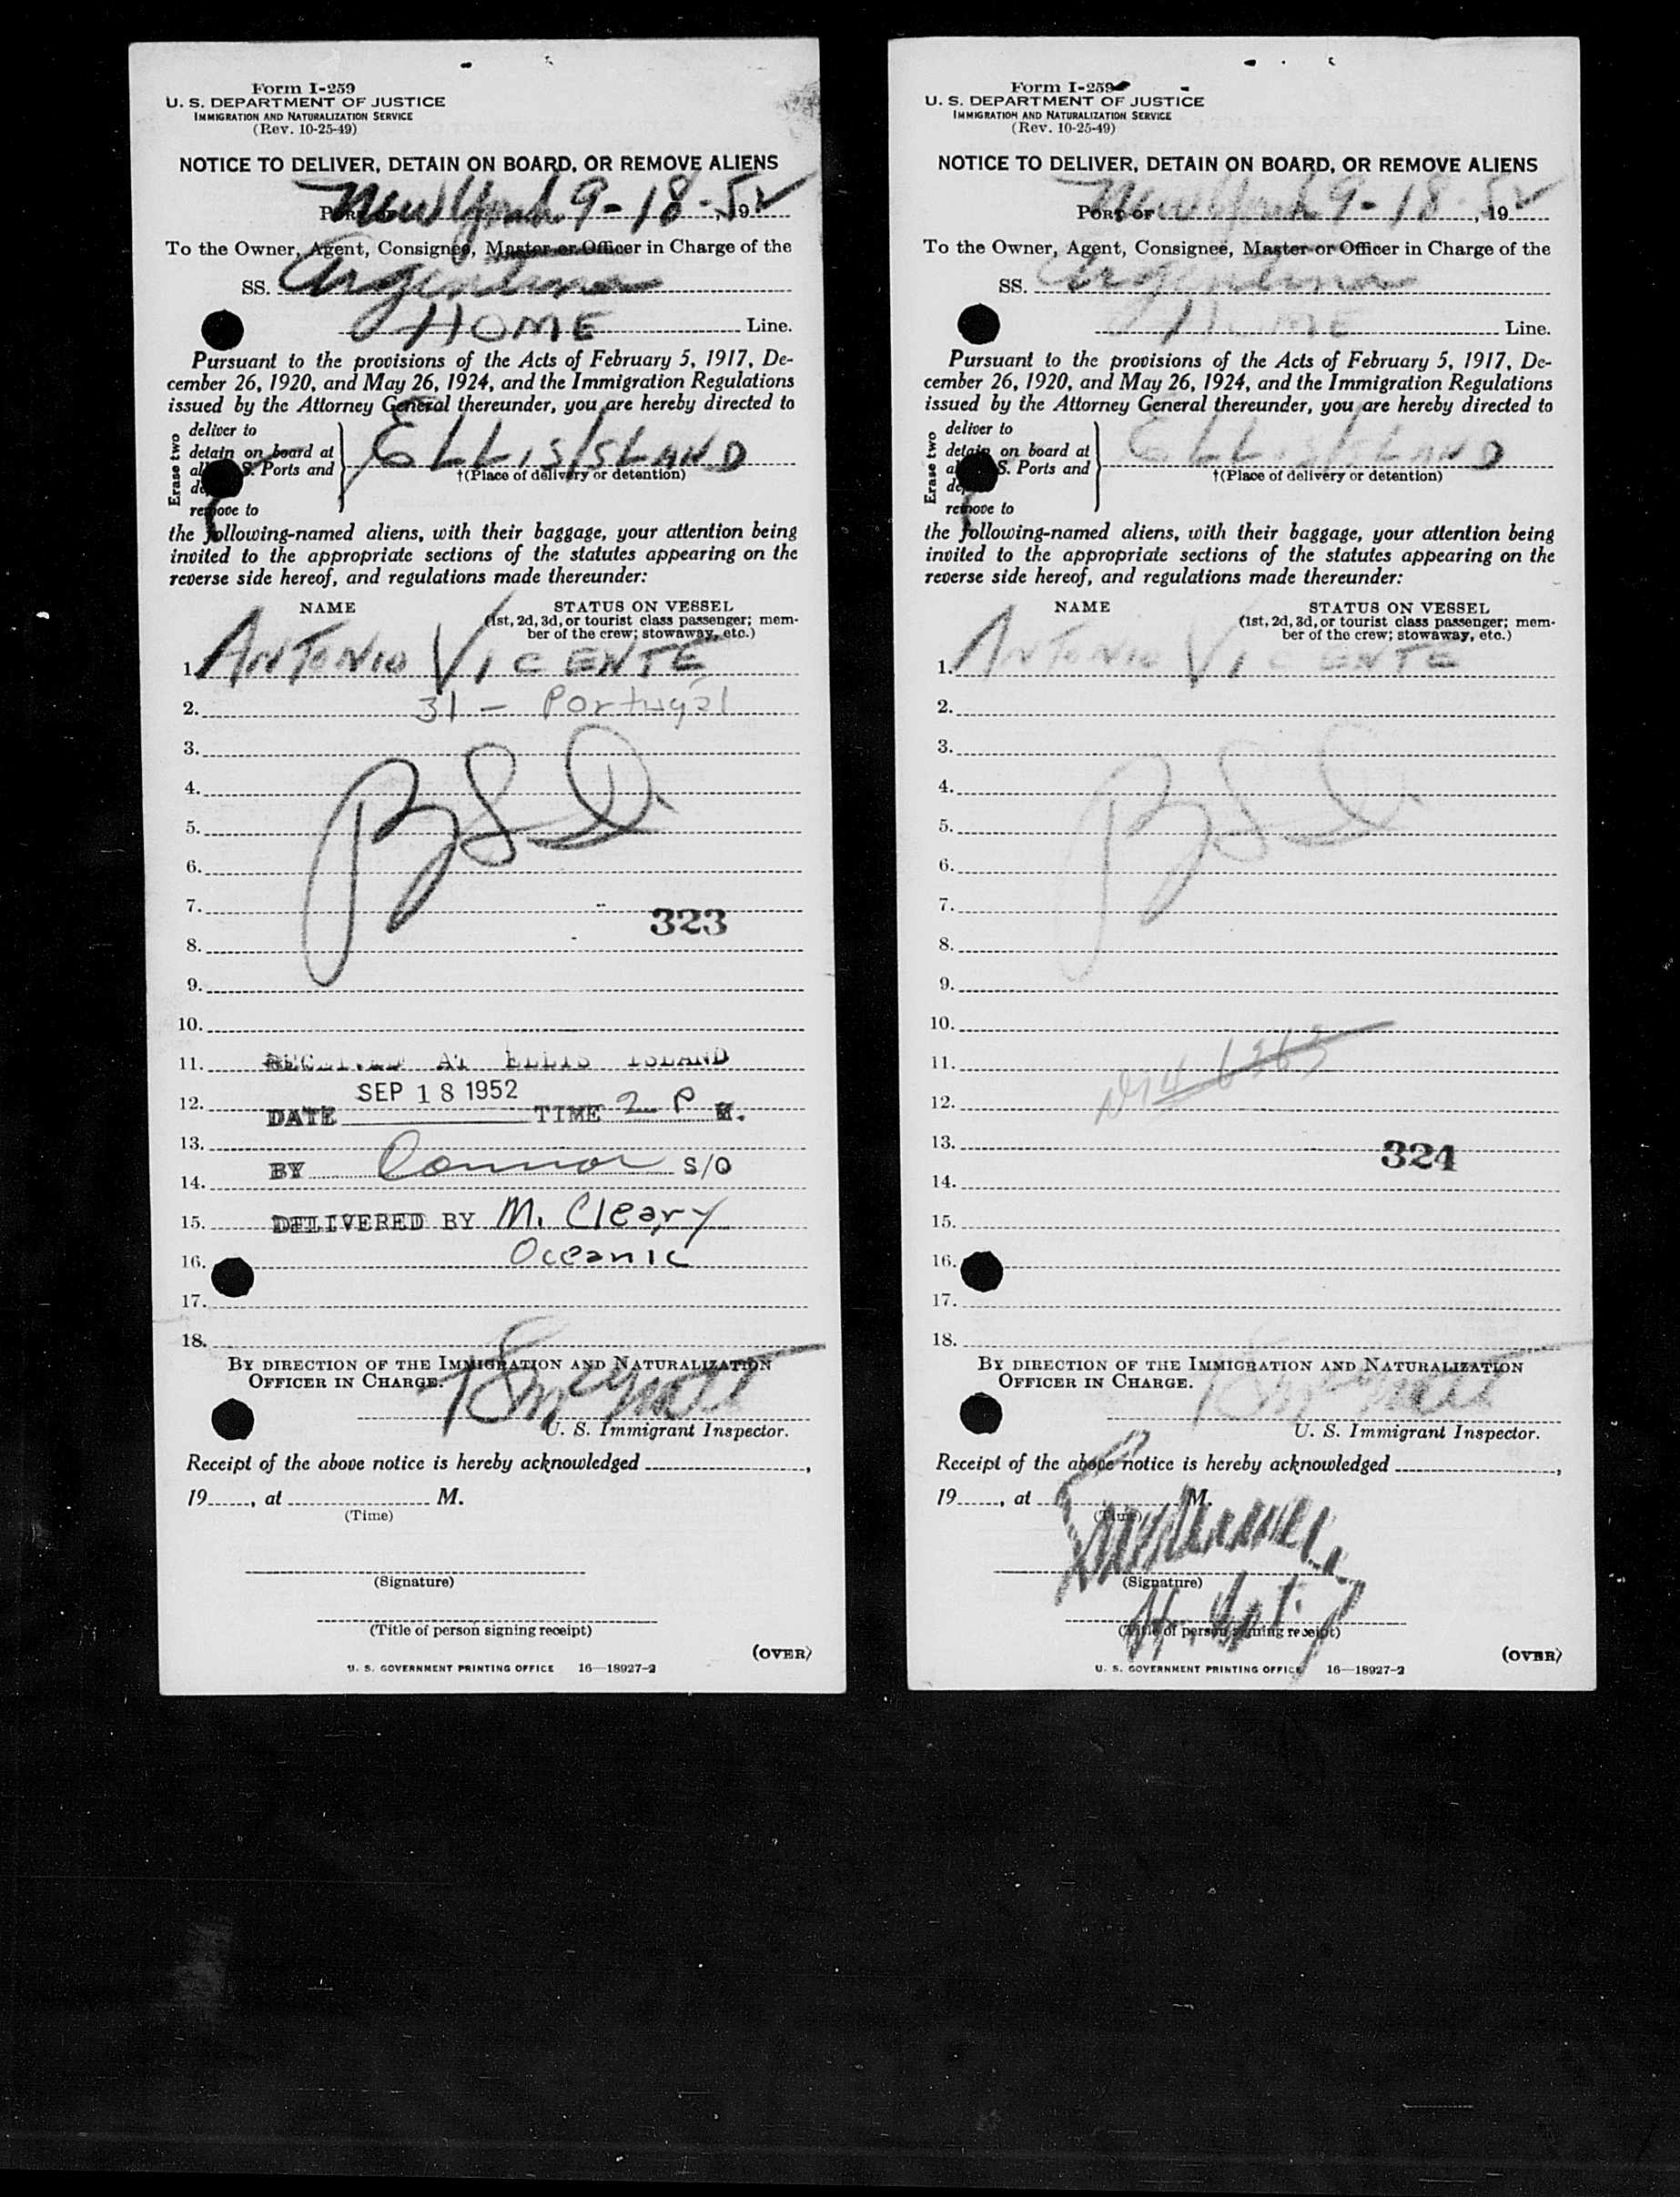 Form I-259
U. S. DEPARTMENT OF JUSTICE
IMMIGRATION AND NATURALIZATION SERVICE
(Rev. 10-25-49)
NOTICE TO DELIVER, DETAIN ON BOARD, OR REMOVE ALIENS
New York 9-18-52, 19
To the Owner, Agent, Consignee, Master or Officer in Charge of the
SS. Argentina
HOME Line.
Pursuant to the provisions of the Acts of February 5, 1917, De-
cember 26, 1920, and May 26, 1924, and the Immigration Regulations
issued by the Attorney General thereunder, you are hereby directed to
Erase two
deliver to
detain on board at
S. Ports and
remove to
ELLIS ISLAND
†(Place of delivery or detention)
the following-named aliens, with their baggage, your attention being
invited to the appropriate sections of the statutes appearing on the
reverse side hereof, and regulations made thereunder:
NAME STATUS ON VESSEL
(1st, 2d, 3d, or tourist class passenger; mem-
ber of the crew; stowaway, etc.)
1. ANTONIO VICENTE
2. 31 - Portugal
3.
4.
5.
6.
7.
323
8.
9.
10.
11. RECEIVED AT ELLIS ISLAND
SEP 18 1952
12. DATE TIME 2 P M.
13.
BY Connor S/O
14.
15. DELIVERED BY M. Cleary
16. Oceanic
17.
18.
BY DIRECTION OF THE IMMIGRATION AND NATURALIZATION
OFFICER IN CHARGE.
U. S. Immigrant Inspector.
Receipt of the above notice is hereby acknowledged ,
19 , at M.
(Time)
(Signature)
(Title of person signing receipt)
(OVER)
U. S. GOVERNMENT PRINTING OFFICE 16—18927-2
Form I-259
U. S. DEPARTMENT OF JUSTICE
IMMIGRATION AND NATURALIZATION SERVICE
(Rev. 10-25-49)
NOTICE TO DELIVER, DETAIN ON BOARD, OR REMOVE ALIENS
PORT OF New York 9-18-52, 19
To the Owner, Agent, Consignee, Master or Officer in Charge of the
SS. Argentina
HOME Line.
Pursuant to the provisions of the Acts of February 5, 1917, De-
cember 26, 1920, and May 26, 1924, and the Immigration Regulations
issued by the Attorney General thereunder, you are hereby directed to
Erase two
deliver to
detain on board at
S. Ports and
remove to
ELLIS ISLAND
†(Place of delivery or detention)
the following-named aliens, with their baggage, your attention being
invited to the appropriate sections of the statutes appearing on the
reverse side hereof, and regulations made thereunder:
NAME STATUS ON VESSEL
(1st, 2d, 3d, or tourist class passenger; mem-
ber of the crew; stowaway, etc.)
1. ANTONIO VICENTE
2.
3.
4.
5.
6.
7.
8.
9.
10.
11.
12.
13.
324
14.
15.
16.
17.
18.
BY DIRECTION OF THE IMMIGRATION AND NATURALIZATION
OFFICER IN CHARGE.
U. S. Immigrant Inspector.
Receipt of the above notice is hereby acknowledged ,
19 , at M.
(Time)
(Signature)
(Title of person signing receipt)
(OVER)
U. S. GOVERNMENT PRINTING OFFICE 16—18927-2